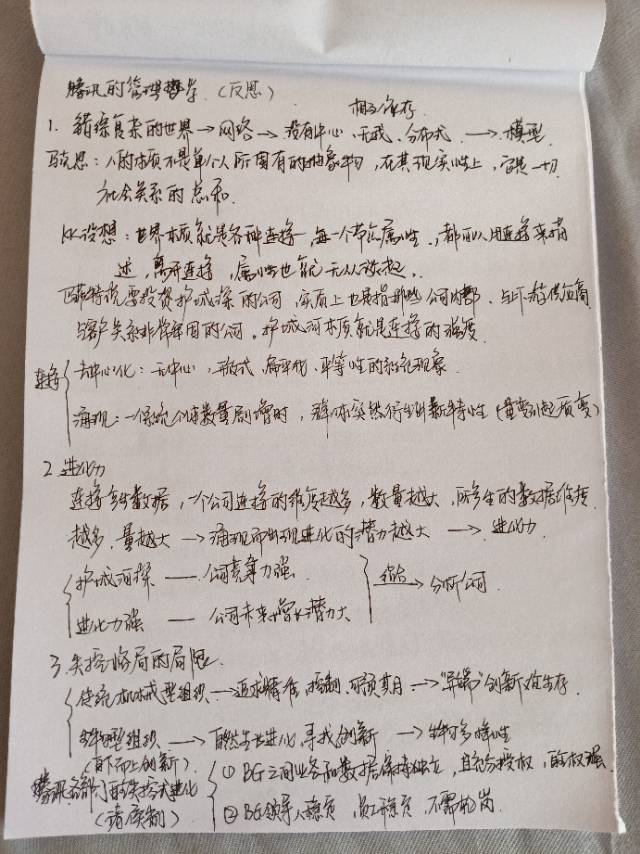 腾讯的管理哲学（反思）
相互依存
1. 错综复杂的世界→网络→没有中心、无式、分布式 → 模型
马克思：人的本质不是单个人所固有的抽象物，在其现实性上，它是一切
社会关系的总和.
KK设想：世界本质就是各种连接，每一个节点属性，都可以用连接来描
述，离开连接，属性也就无从谈起.
巴菲特说要投资护城河深的公司，实质上也是指那些公司内部、与下游供应商
与客户关系非常牢固的公司. 护城河本质就是连接的强度
连接
去中心化：无中心，开放式、扁平化、平等性的 现象
涌现：一个系统个体数量剧增时，群体突然衍生出新特性（量变引起质变）
2. 进化力
连接产生数据，一个公司连接的维度越多，数量越大，所产生的数据维度
越多，量越大→涌现而出现进化的潜力越大→进化力
护城河深 —— 公司竞争力强
进化力强 —— 公司未来增长潜力大
结合→ 分析公司
3. 失控格局的局限
传统机械型组织→追求精准、控制、可预期→“异端”创新难生存.
生物型组织→自然生长进化、寻找创新→ 多样性
（自下而上创新）
腾讯各部门的失控式进化
（诸侯制）
① BG之间业务和数据保持独立，且充分授权，自主权强
② BG领导人稳定，员工稳定，不需轮岗.